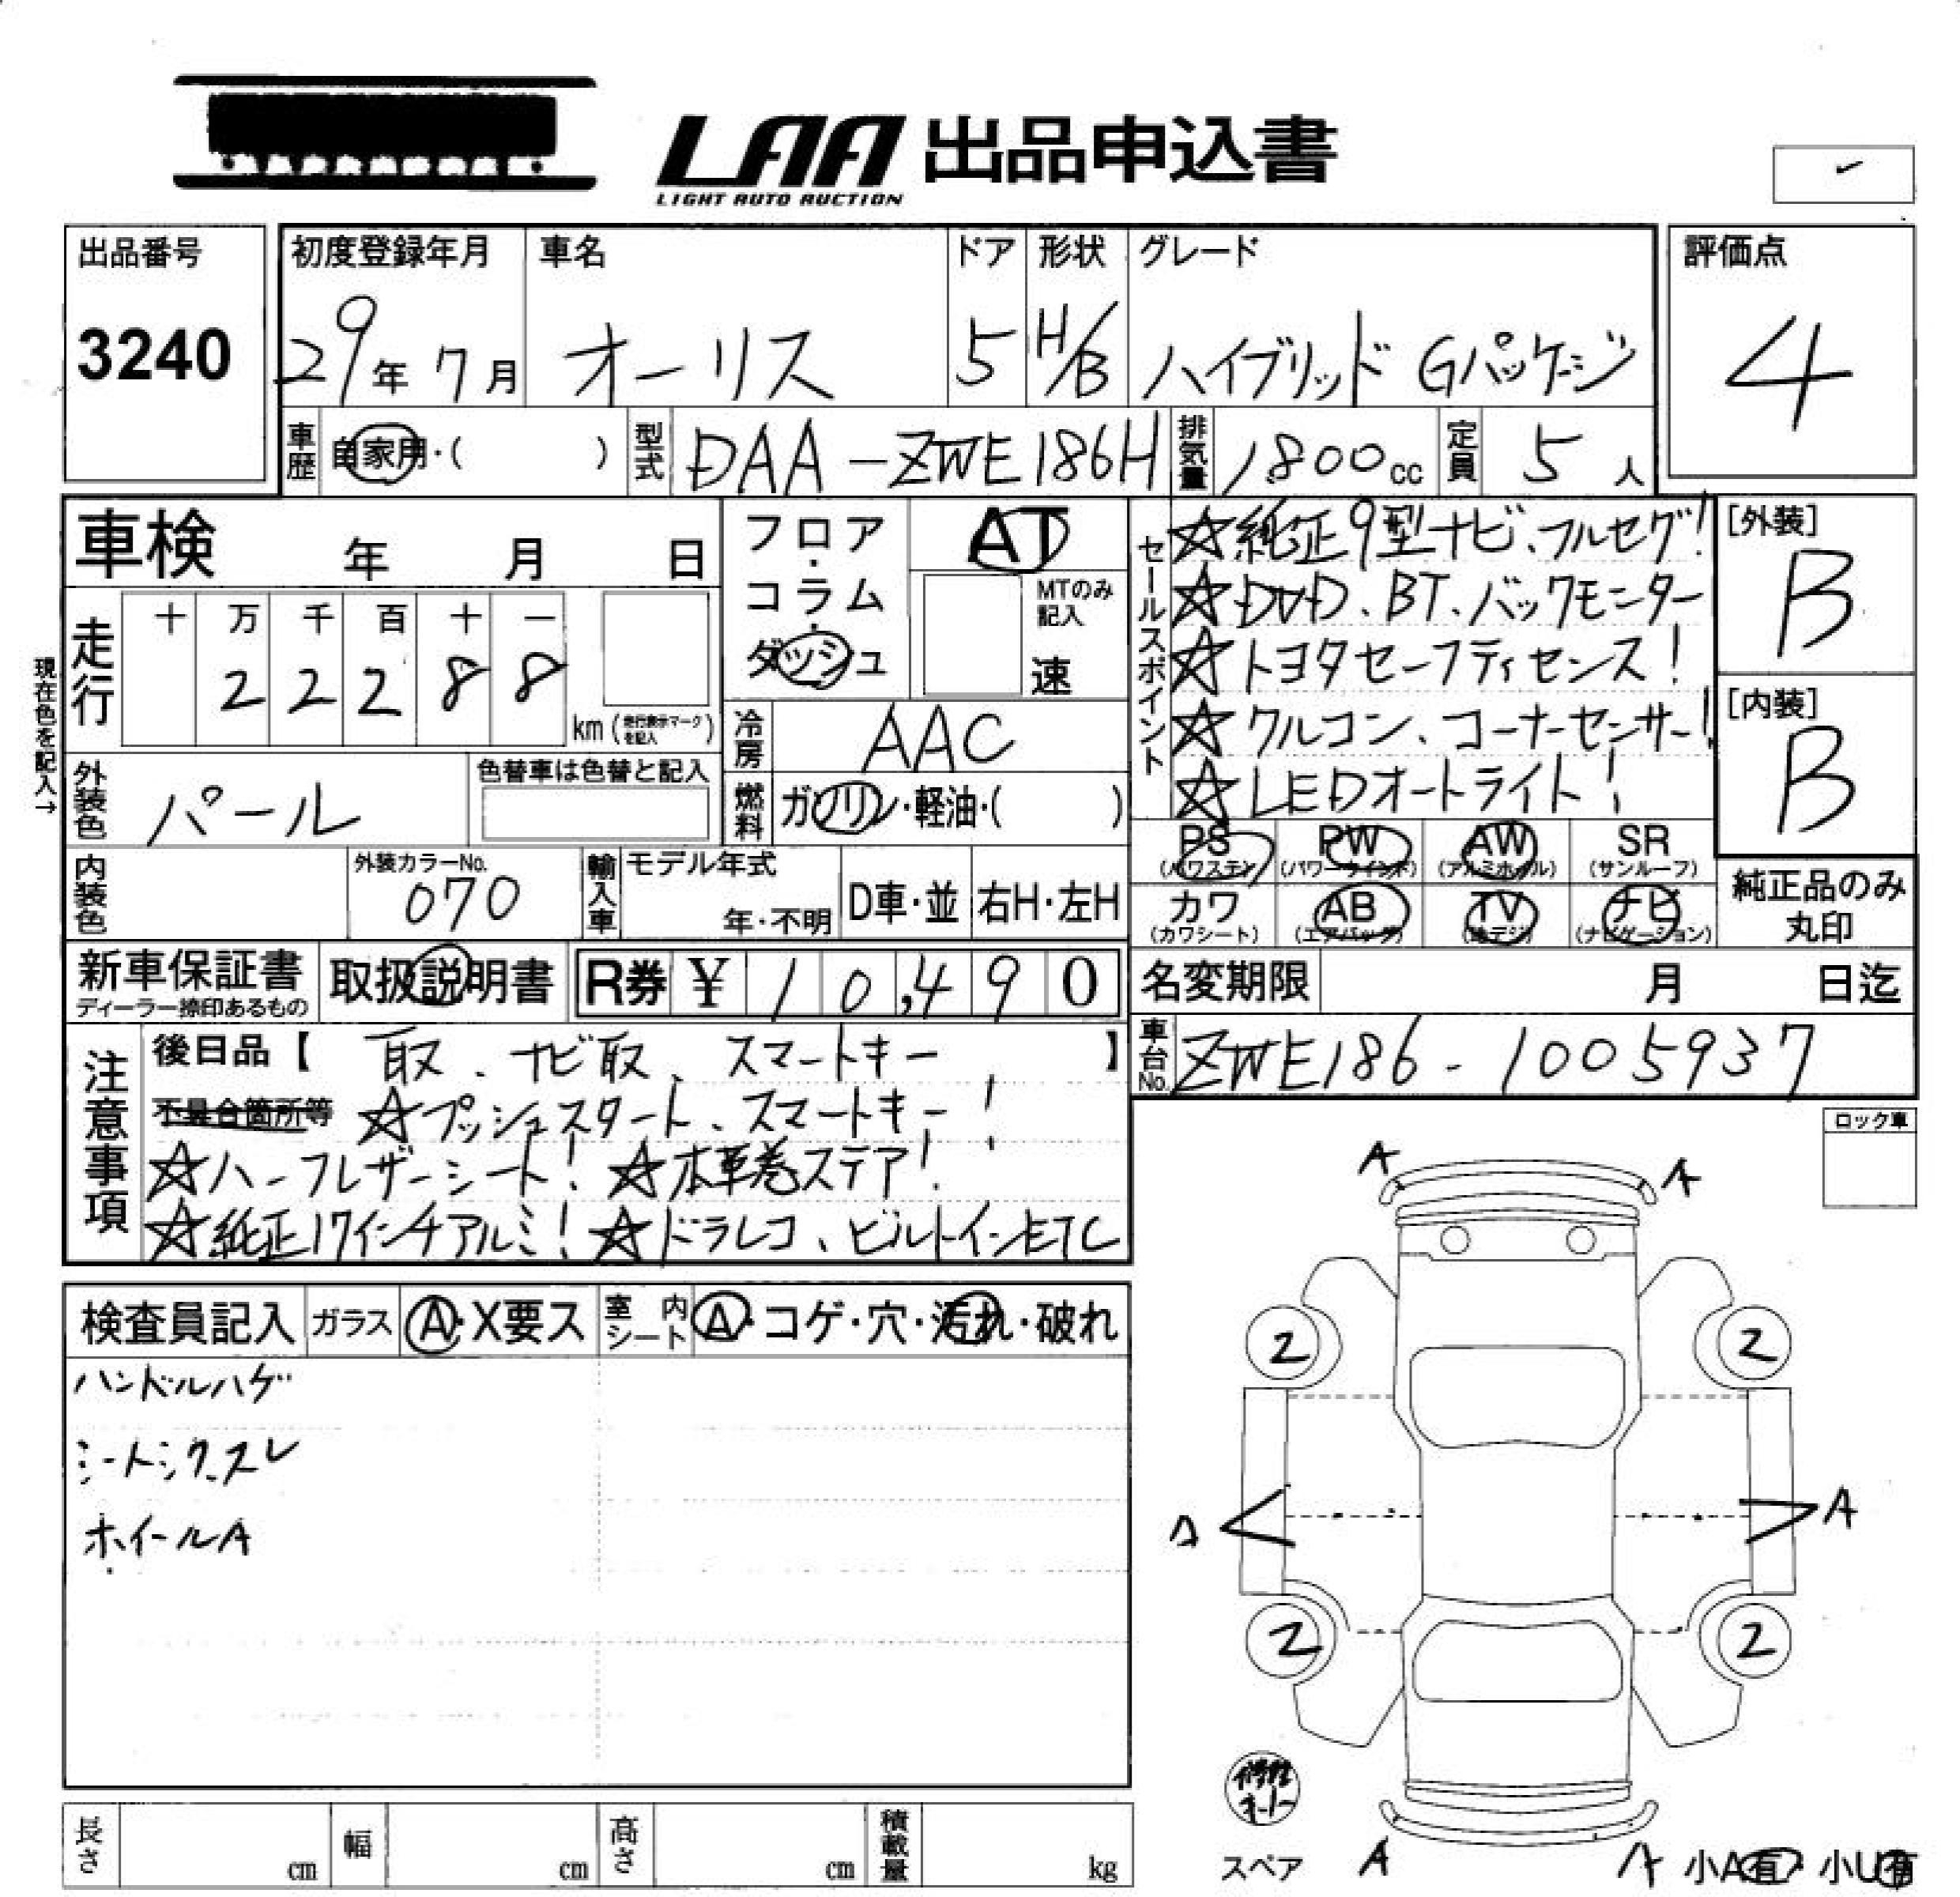 LAA 出品申込書
LIGHT AUTO AUCTION
出品番号
3240
初度登録年月
29年 7月
車名
オーリス
ドア
5
形状
H/B
グレード
ハイブリッド Gパッケージ
評価点
4
車歴 自家用・( )
型式 DAA-ZWE186H
排気量 1800cc
定員 5人
車検 年 月 日
フロア・コラム・ダッシュ
AT
MTのみ記入
速
走行
十 万 千 百 十 一
2 2 2 8 8
km (走行表示マークを記入)
現在色を記入→
冷房 AAC
外装色 パール
色替車は色替と記入
燃料 ガソリン・軽油・( )
セールスポイント
☆純正9型ナビ、フルセグ!
☆DVD、BT、バックモニター
☆トヨタセーフティセンス!
☆クルコン、コーナーセンサー!
☆LEDオートライト!
[外装]
B
[内装]
B
内装色
外装カラーNo.
070
輸入車
モデル年式
年・不明
D車・並
右H・左H
PS (パワステ)
PW (パワーウインド)
AW (アルミホイル)
SR (サンルーフ)
カワ (カワシート)
AB (エアバッグ)
TV (地デジ)
ナビ (ナビゲーション)
純正品のみ丸印
新車保証書
ディーラー捺印あるもの
取扱説明書
R券 ¥ 10,490
名変期限 月 日迄
車台No. ZWE186-1005937
注意事項
後日品【 取、ナビ取、スマートキー 】
不具合箇所等 ☆プッシュスタート、スマートキー!
☆ハーフレザーシート! ☆本革巻ステア!
☆純正17インチアルミ! ☆ドラレコ、ビルトインETC
ロック車
検査員記入
ガラス A・X要ス
室内シート A・コゲ・穴・汚れ・破れ
ハンドルハゲ
シートシワ、スレ
ホイールA
A A
2 2
A A
2 2
スペア
A A
小A有・小U有
長さ cm
幅 cm
高さ cm
積載量 kg